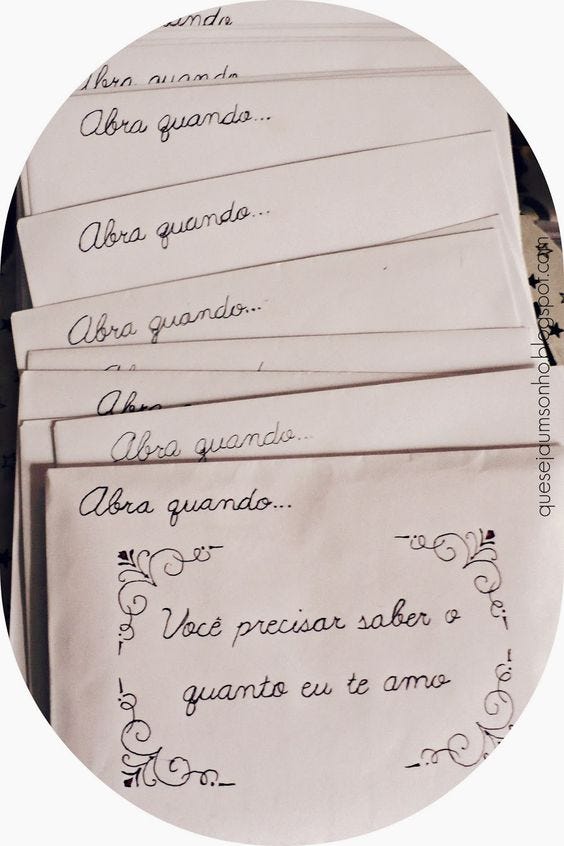 Abra quando
Abra quando...
Abra quando...
Abra quando...
Abra quando...
Abra quando...
Você precisar saber o
quanto eu te amo
quesejaumsonho.blogspot.com